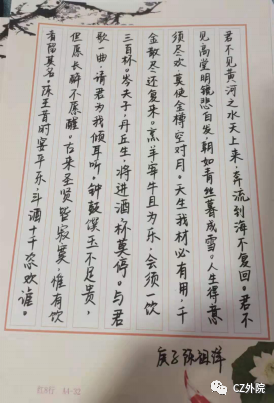 君不见黄河之水天上来,奔流到海不复回。君不
见高堂明镜悲白发,朝如青丝暮成雪。人生得意
须尽欢,莫使金樽空对月。天生我材必有用,千
金散尽还复来。烹羊宰牛且为乐,会须一饮
三百杯。岑夫子,丹丘生,将进酒杯莫停。与君
歌一曲,请君为我倾耳听。钟鼓馔玉不足贵,
但愿长醉不愿醒。古来圣贤皆寂寞,惟有饮
者留其名。陈王昔时宴平乐,斗酒十千恣欢谑。
庚子
44-32
CZ外院